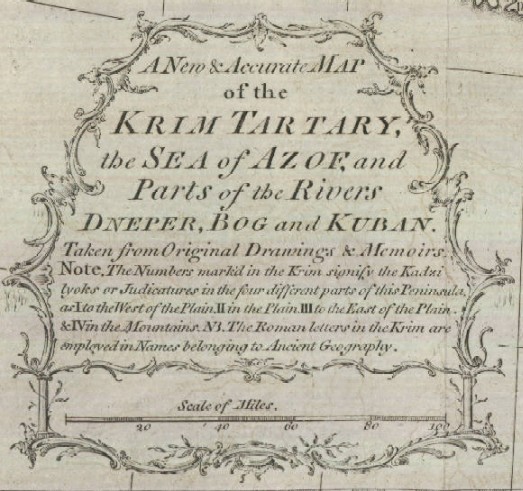 A New & Accurate MAP
of the
KRIM TARTARY,
the SEA of AZOF, and
Parts of the Rivers
DNEPER, BOG and KUBAN.
Taken from Original Drawings & Memoirs.
Note, The Numbers mark'd in the Krim signify the Kadzi
lyoks or Judicatures in the four different parts of this Peninsula,
as I to the West of the Plain. II in the Plain. III to the East of the Plain.
& IV in the Mountains. NB. The Roman letters in the Krim are
employed in Names belonging to Ancient Geography.
Scale of Miles.
20 40 60 80 100